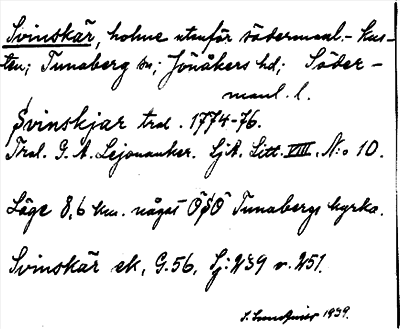 Svinskär, holme utanför södermanl.-kus-
ten; Tunaberg sn; Jönåkers hd; Söder-
manl. l.
Svinskjar trol. 1774-76.
Trol. G. A. Lejonanker. SjA. Litt. VIII. N:o 10.
Läge 8,6 km. något ÖSÖ Tunabergs kyrka.
Svinskär ek, G.56, Sj: 239 v. 251.
1939.